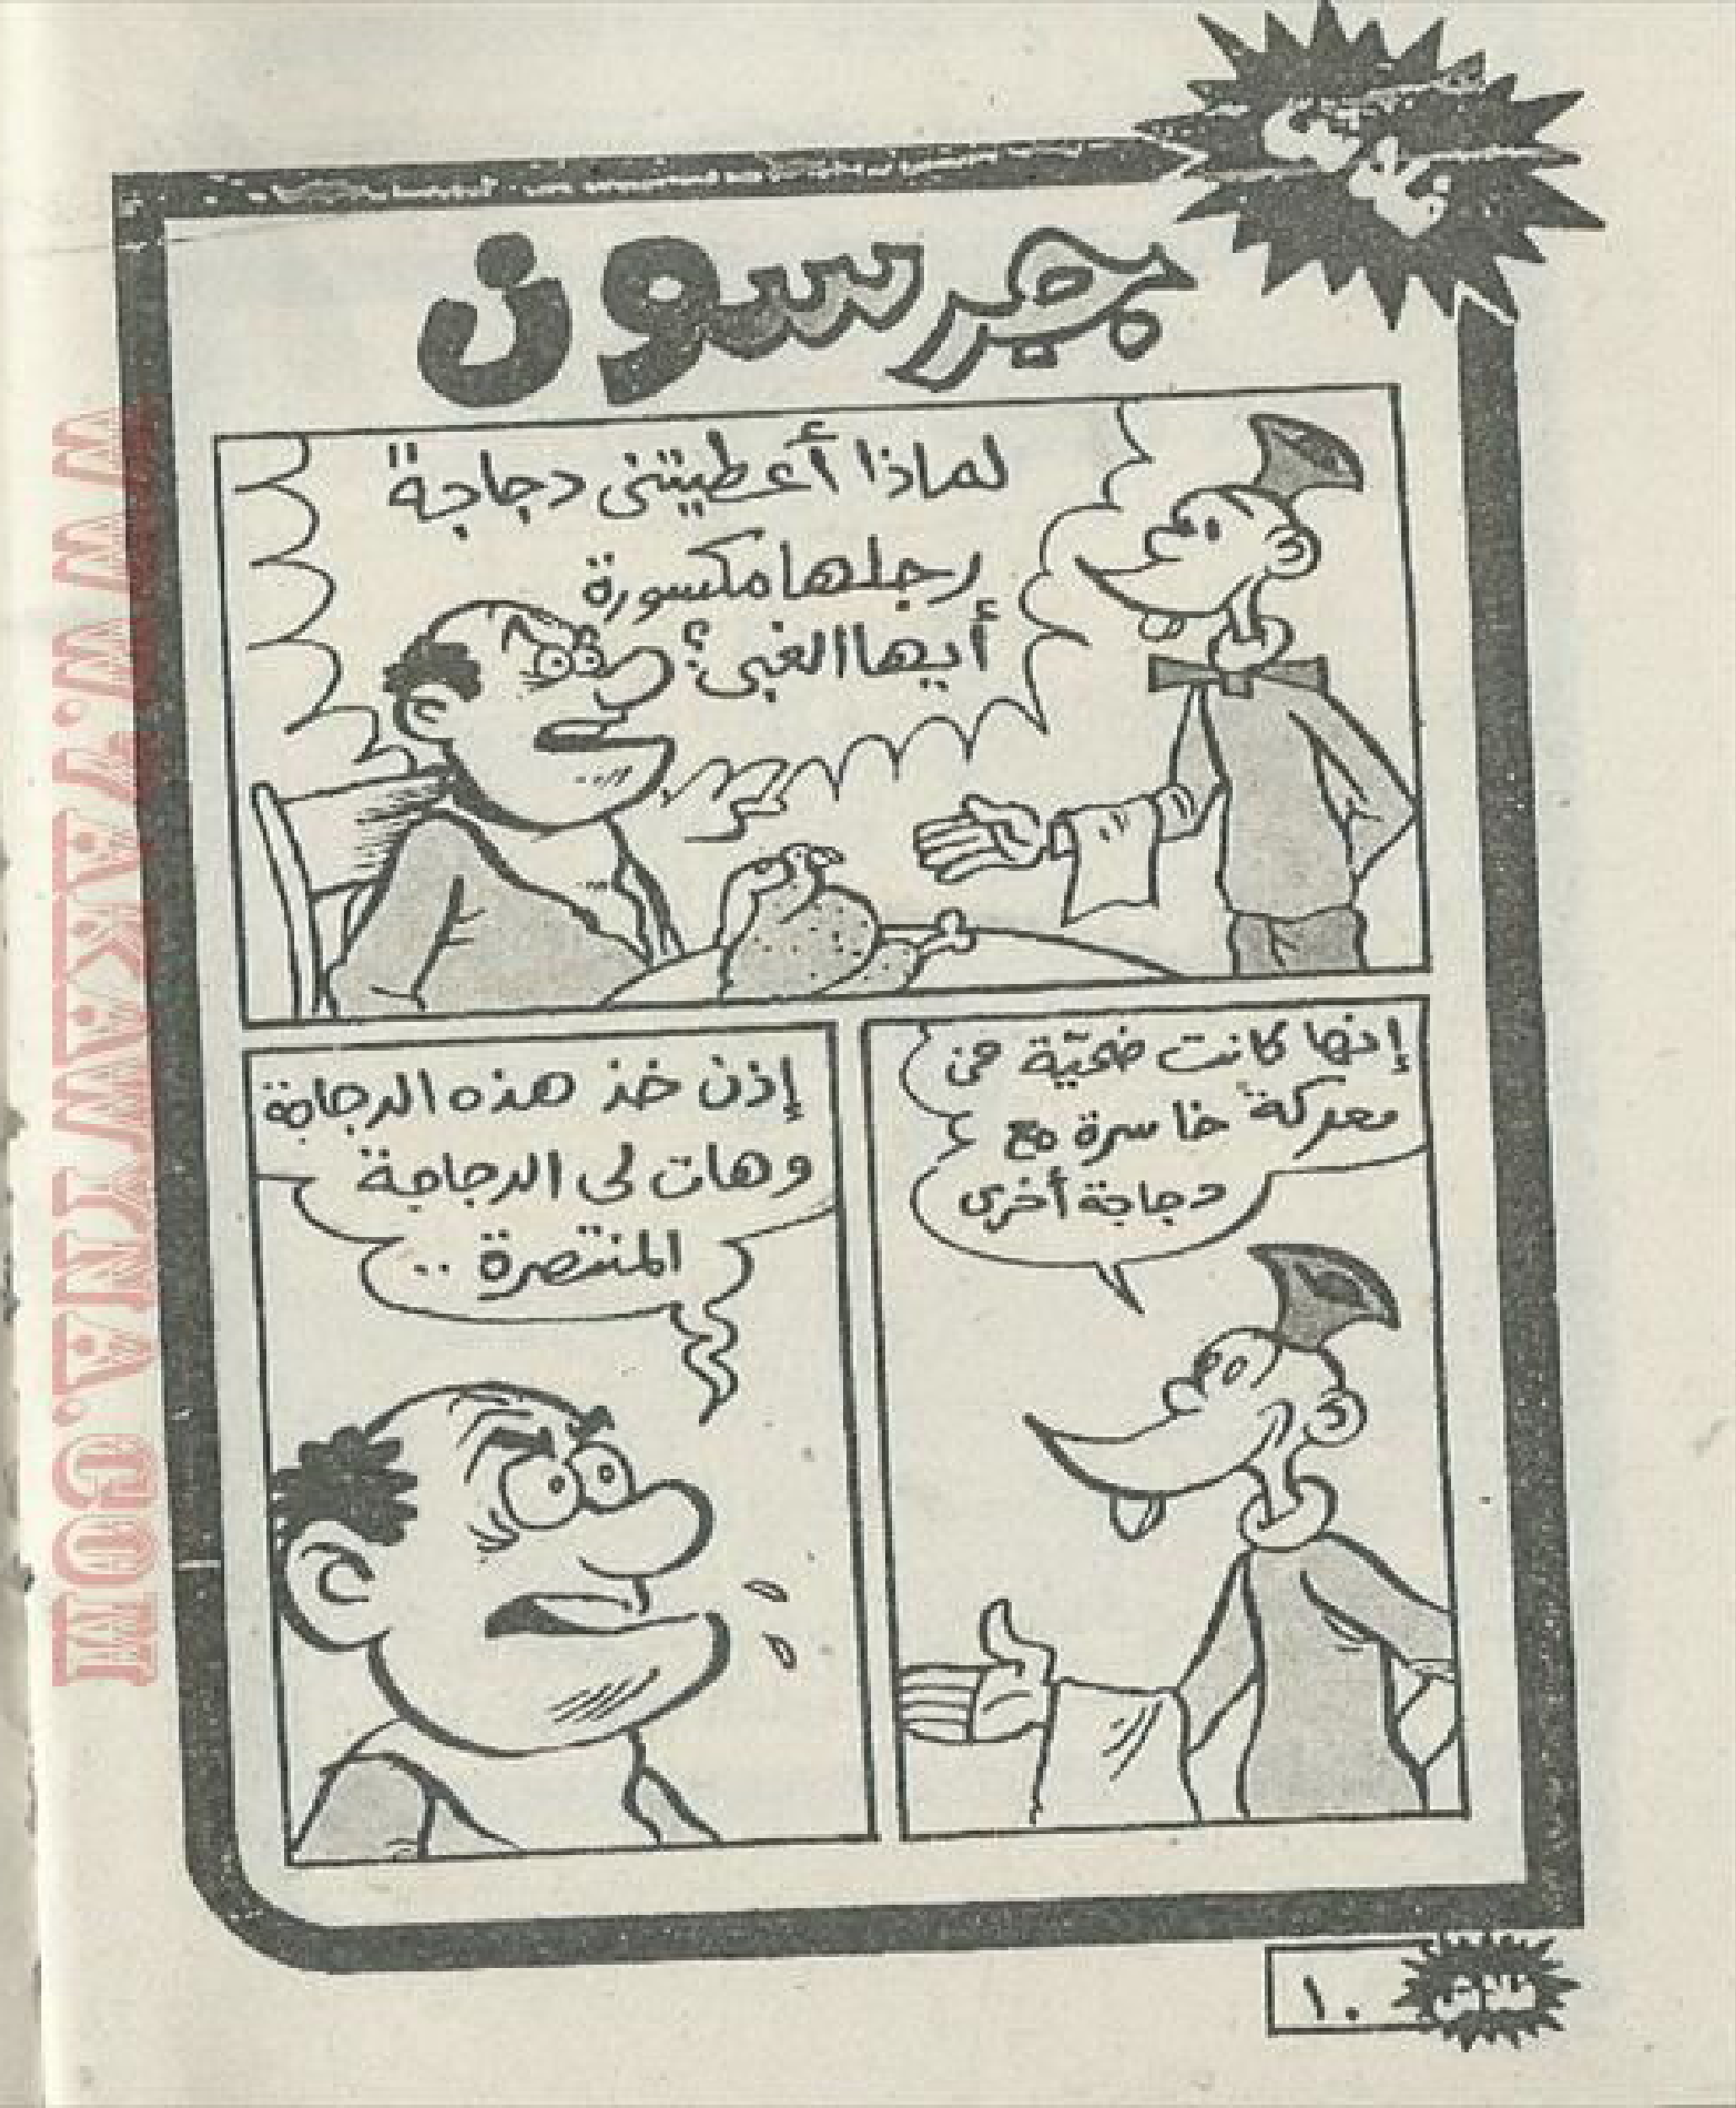 فلاش
جرسون
لماذا أعطيتنى دجاجة
رجلها مكسورة
أيها الغبى؟
إنها كانت ضحيّة فى
معركة خاسرة مع
دجاجة أخرى
إذن خذ هذه الدجاجة
وهات لى الدجاجة
المنتصرة ..
فلاش
١٠